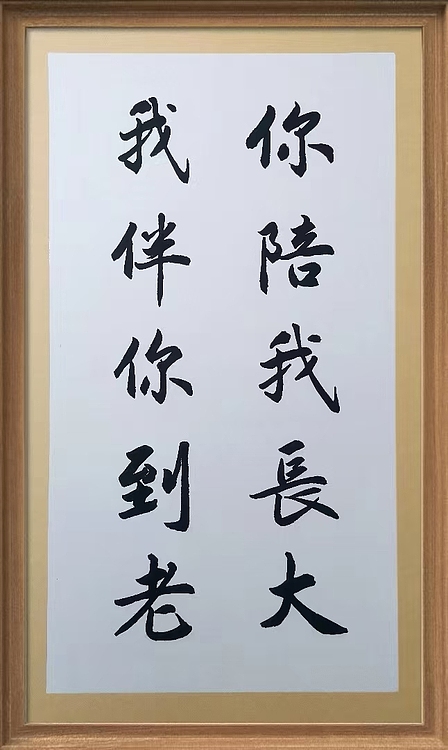 你陪我長大
我伴你到老